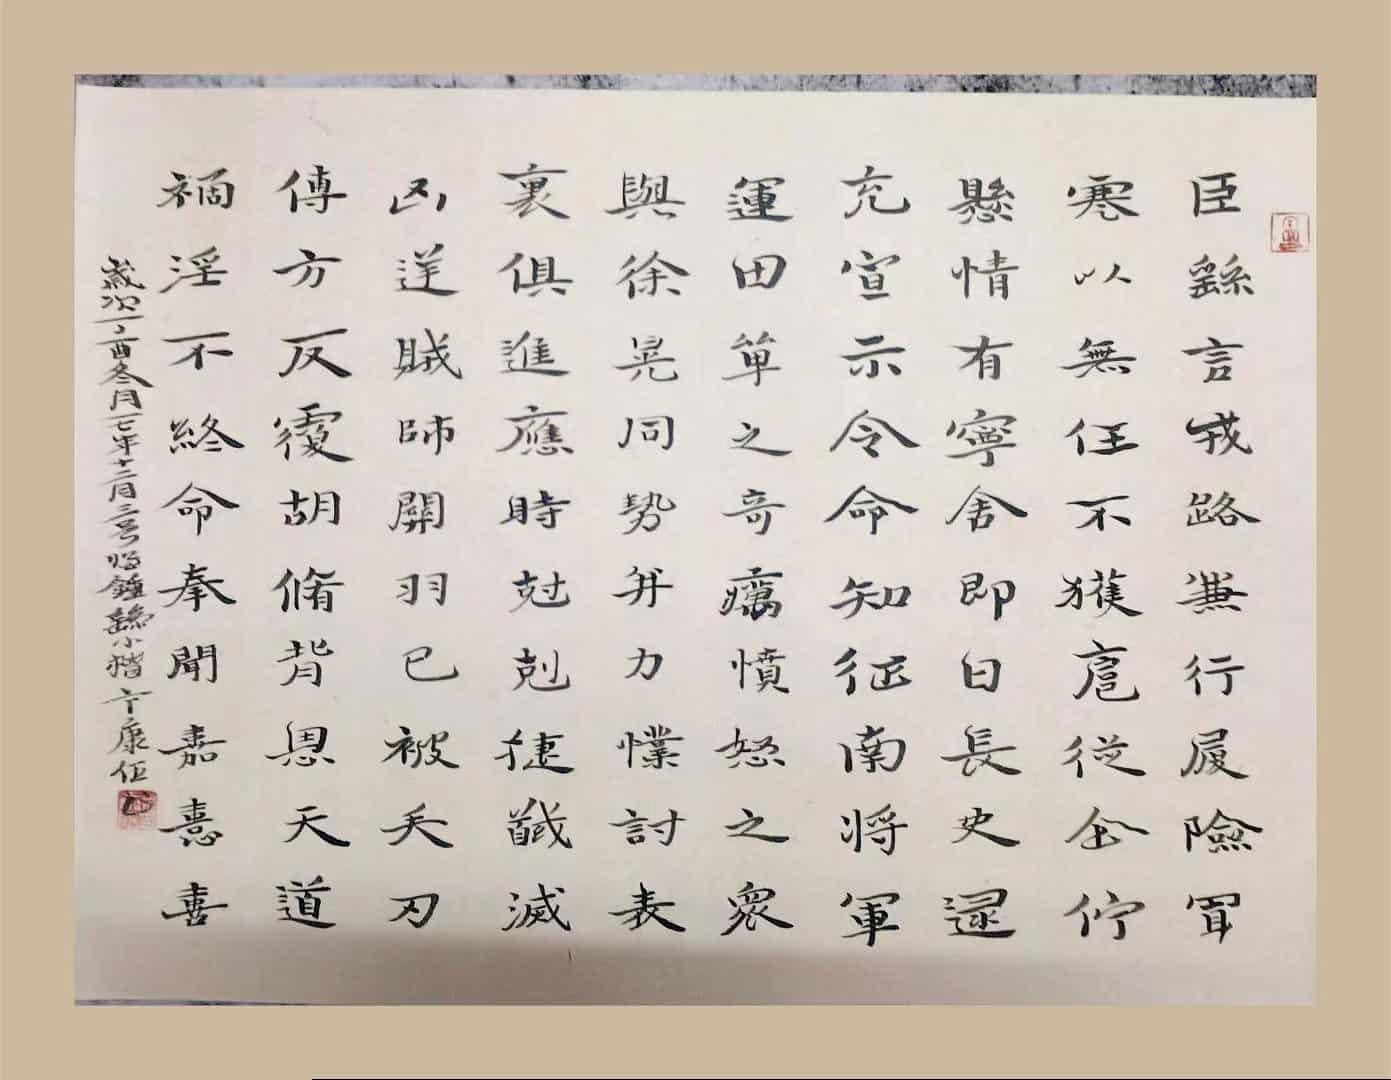 臣繇言戎路兼行履險冒
寒以無任不獲扈從企佇
懸情有寧舍即日長史逯
充宣示令命知征南將軍
運田單之奇癘憤怒之衆
與徐晃同勢并力㒒討表
裏俱進應時尅剋捷馘滅
凶逆賊帥關羽已被矢刃
傅方反覆胡脩背恩天道
禍淫不終命奉聞嘉憙喜
歲次丁酉冬月一七年十二月三号臨鍾繇小楷 康